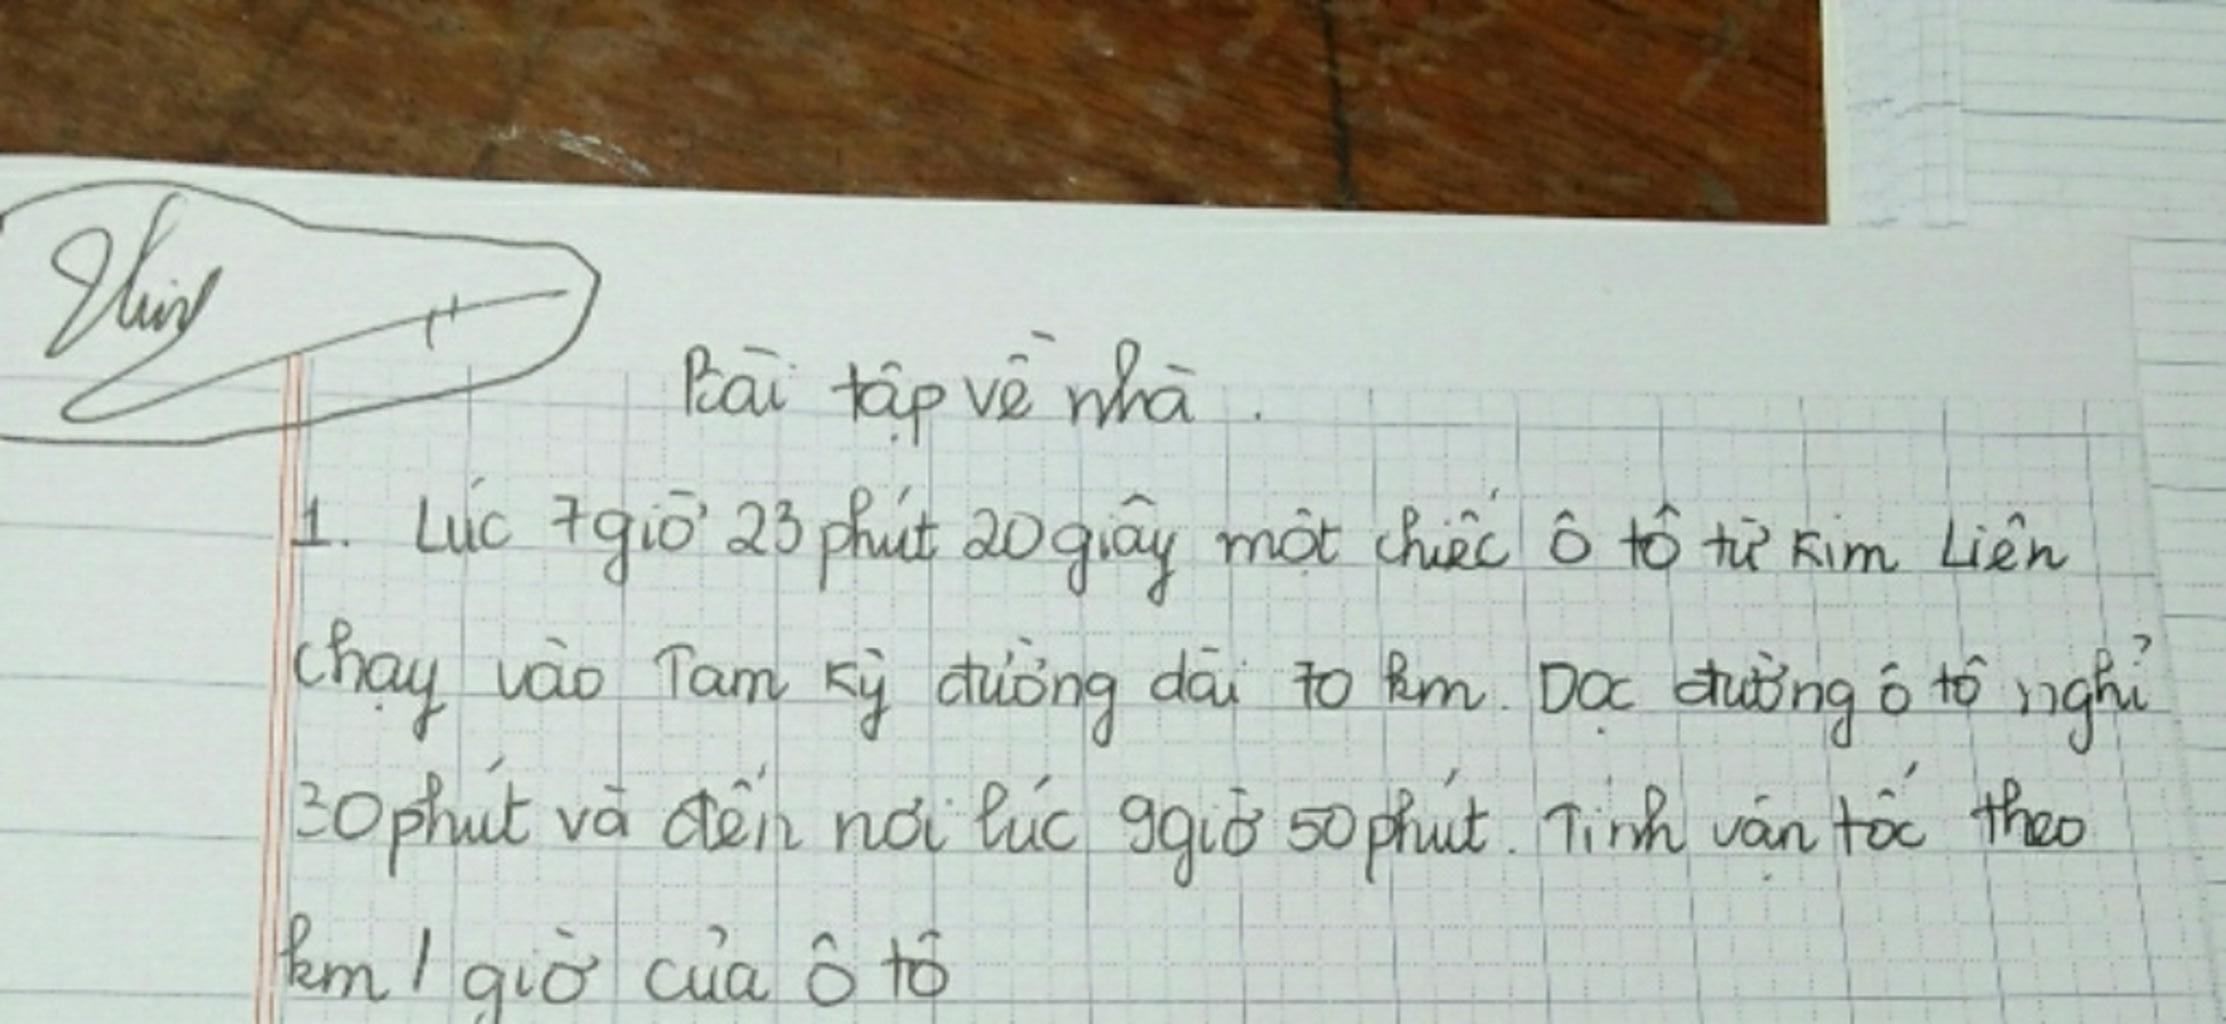 Bài tập về nhà.
1. Lúc 7 giờ 23 phút 20 giây một chiếc ô tô từ Kim Liên
chạy vào Tam Kỳ đường dài 70 km. Dọc đường ô tô nghỉ
30 phút và đến nơi lúc 9 giờ 50 phút. Tính vận tốc theo
km / giờ của ô tô